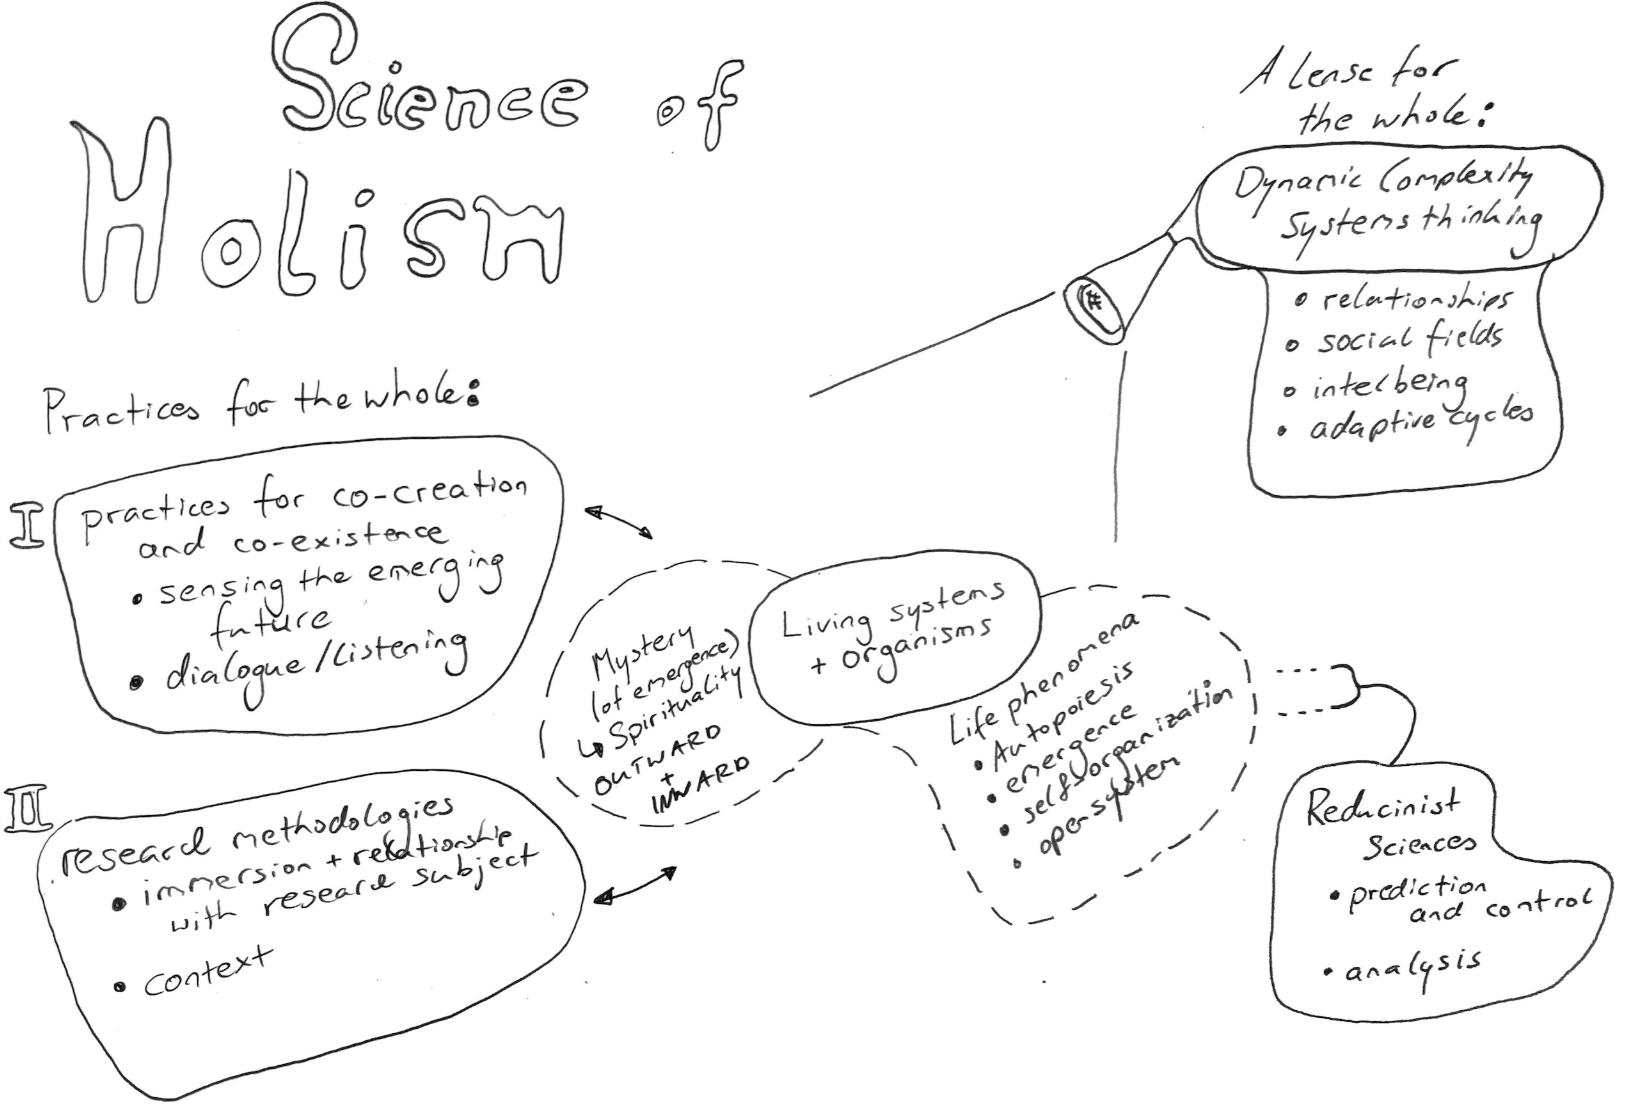 Science of
Holism
A lense for
the whole:
Dynamic Complexity
Systems thinking
• relationships
• social fields
• interbeing
• adaptive cycles
Practices for the whole:
I
practices for co-creation
and co-existence
• sensing the emerging
future
• dialogue/listening
II
research methodologies
• immersion + relationship
with research subject
• context
Mystery
(of emergence)
↳ Spirituality
OUTWARD
+
INWARD
Living systems
+ organisms
Life phenomena
• Autopoiesis
• emergence
• self-organization
• open system
Reducinist
Sciences
• prediction
and control
• analysis